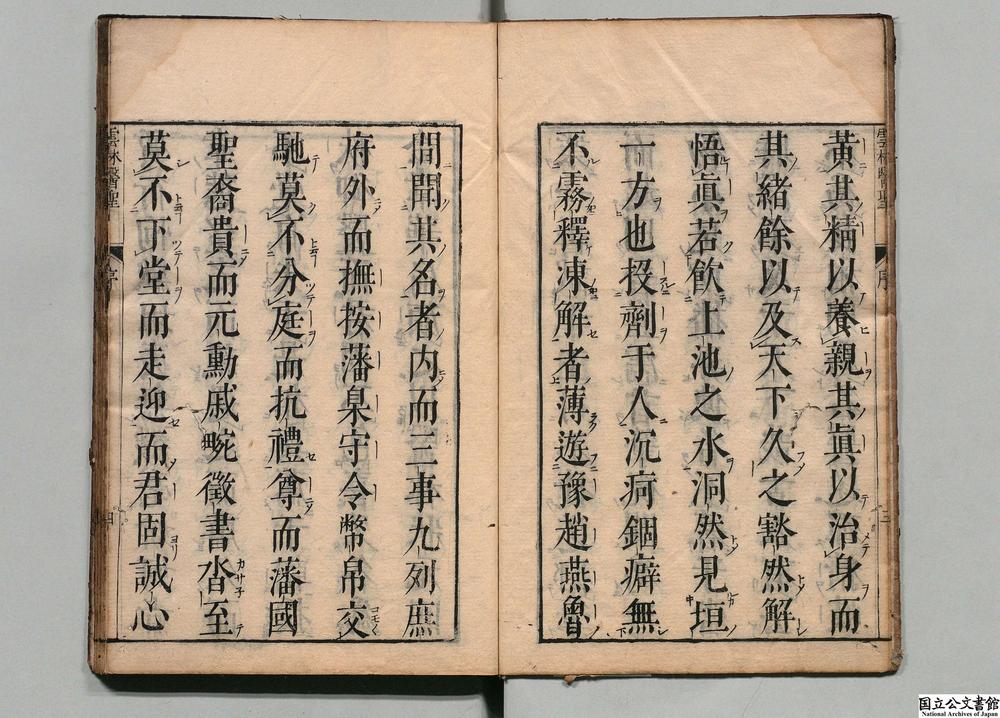 黃其精以養親其眞以治身而
其緒餘以及天下久之豁然解
悟眞若飮上池之水洞然見垣
一方也投劑于人沉疴錮癖無
不霧釋凍解者薄遊豫趙燕魯
間聞其名者内而三事九列庶
府外而撫按藩臬守令幣帛交
馳莫不分庭而抗禮尊而藩國
聖裔貴而元勳戚畹徵書沓至
莫不下堂而走迎而君固誠心
雲林醫聖
序
三
雲林醫聖
序
四
国立公文書館
National Archives of Japan